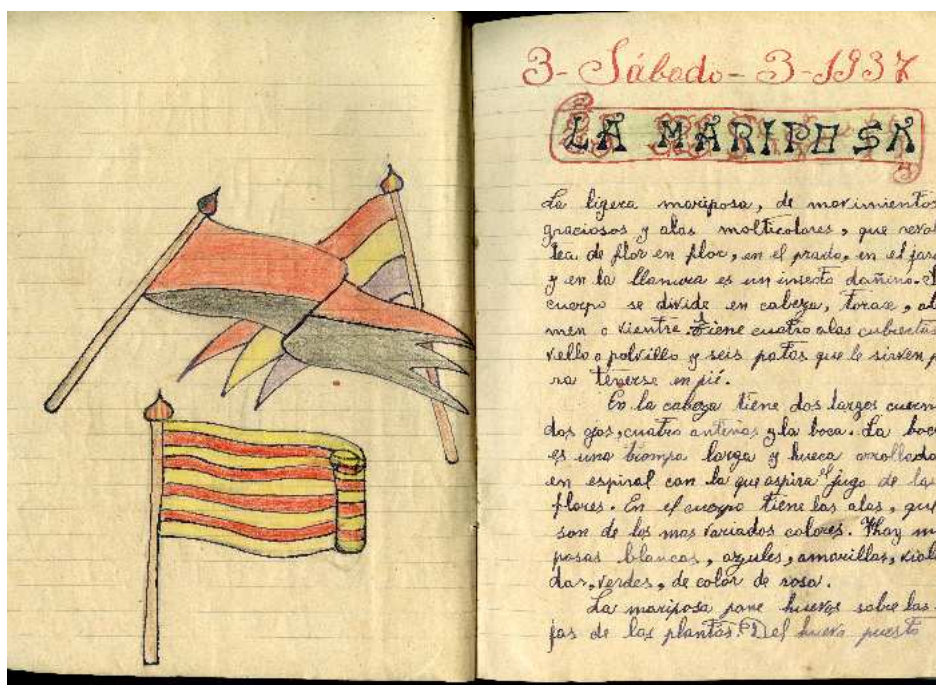 3- Sábado - 3-1937
LA MARIPOSA
La ligera mariposa, de movimientos
graciosos y alas molticolores, que revol
tea de flor en flor, en el prado, en el jard
y en la llanura es un insecto dañino. S
cuerpo se divide en cabeza, torax, ab
men o vientre. Tiene cuatro alas cubiertas
vello o polvillo y seis patas que le sirven p
ra tenerse en pié.
En la cabeza tiene dos largos cuern
dos gos, cuatro antenas y la boca. La boca
es una trompa larga y hueca arrollada
en espiral con la que aspira el jugo de las
flores. En el cuerpo tiene las alas, que
son de los mas variados colores. Hay m
posas blancas, azules, amarillas, viola
das, verdes, de color de rosa.
La mariposa pone huevos sobre las
jas de las plantas. el huevo puesto